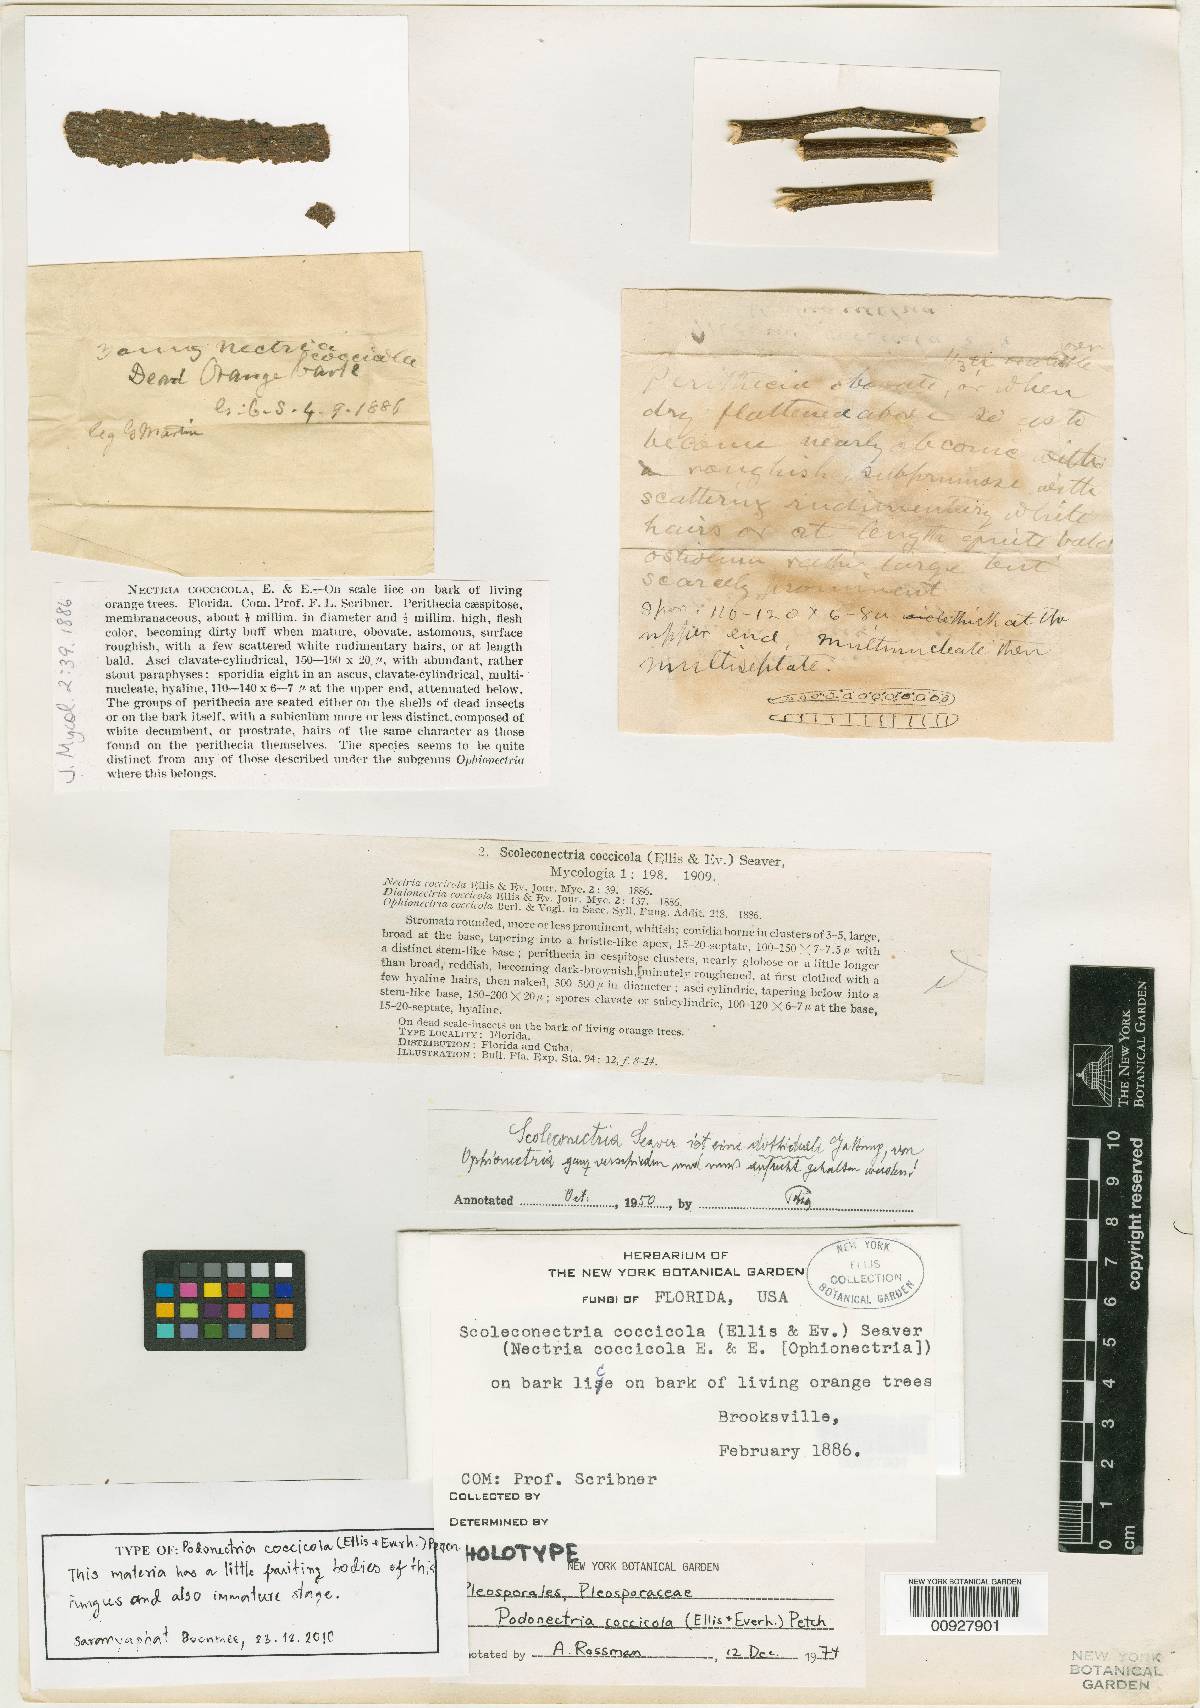 Young Nectria
coccicola
Dead Orange bark
4.9.1886
leg G Martin
J. Mycol. 2:39. 1886
NECTRIA COCCICOLA, E. & E.—On scale lice on bark of living
orange trees. Florida. Com. Prof. F. L. Scribner. Perithecia cæspitose,
membranaceous, about ⅓ millim. in diameter and ½ millim. high, flesh
color, becoming dirty buff when mature, obovate, astomous, surface
roughish, with a few scattered white rudimentary hairs, or at length
bald. Asci clavate-cylindrical, 150—190 x 20 µ, with abundant, rather
stout paraphyses: sporidia eight in an ascus, clavate-cylindrical, multi-
nucleate, hyaline, 110—140 x 6—7 µ at the upper end, attenuated below.
The groups of perithecia are seated either on the shells of dead insects
or on the bark itself, with a subiculum more or less distinct, composed of
white decumbent, or prostrate, hairs of the same character as those
found on the perithecia themselves. The species seems to be quite
distinct from any of those described under the subgenus Ophionectria
where this belongs.
Perithecia obovate, or when
dry flattened above so as to
become nearly obconic
roughish, subpruinose with
scattering rudimentary white
hairs or at length quite bald
ostiolum rather large but
scarcely prominent
Spor: 110-120 x 6-8µ thick at the
upper end, multinucleate then
multiseptate
2. Scoleconectria coccicola (Ellis & Ev.) Seaver,
Mycologia 1: 198. 1909.
Nectria coccicola Ellis & Ev. Jour. Myc. 2: 39. 1886.
Dialonectria coccicola Ellis & Ev. Jour. Myc. 2: 137. 1886.
Ophionectria coccicola Berl. & Vogl. in Sacc. Syll. Fung. Addit. 218. 1886.
Stromata rounded, more or less prominent, whitish; conidia borne in clusters of 3-5, large,
broad at the base, tapering into a bristle-like apex, 15-20-septate, 100-150 × 7-7.5 µ with
a distinct stem-like base; perithecia in cespitose clusters, nearly globose or a little longer
than broad, reddish, becoming dark-brownish, minutely roughened, at first clothed with a
few hyaline hairs, then naked, 300-500 µ in diameter; asci cylindric, tapering below into a
stem-like base, 150-200 × 20 µ; spores clavate or subcylindric, 100-120 × 6-7 µ at the base,
15-20-septate, hyaline.
On dead scale-insects on the bark of living orange trees.
TYPE LOCALITY: Florida.
DISTRIBUTION: Florida and Cuba.
ILLUSTRATION: Bull. Fla. Exp. Sta. 94: 12, f. 8-14.
Scoleconectria Seaver ist eine dothideale Gattung, von
Ophionectria ganz verschieden und muss aufrecht gehalten werden!
Annotated Oct. , 1950, by
HERBARIUM OF
THE NEW YORK BOTANICAL GARDEN
FUNGI OF FLORIDA, USA
NEW YORK
ELLIS
COLLECTION
BOTANICAL GARDEN
Scoleconectria coccicola (Ellis & Ev.) Seaver
(Nectria coccicola E. & E. [Ophionectria])
on bark lice on bark of living orange trees
Brooksville,
February 1886.
COM: Prof. Scribner
COLLECTED BY
DETERMINED BY
TYPE OF: Podonectria coccicola (Ellis + Everh.) Petch
This materia has a little fruiting bodies of this
fungus and also immature stage.
Saranyaphat Boonmee, 23.12.2010
HOLOTYPE
NEW YORK BOTANICAL GARDEN
Pleosporales, Pleosporaceae
Podonectria coccicola (Ellis + Everh.) Petch
notated by A. Rossman, 12 Dec. 1974
NEW YORK BOTANICAL GARDEN
00927901
NEW YORK
BOTANICAL
GARDEN
THE NEW YORK
BOTANICAL GARDEN
copyright reserved
cm 0 1 2 3 4 5 6 7 8 9 10